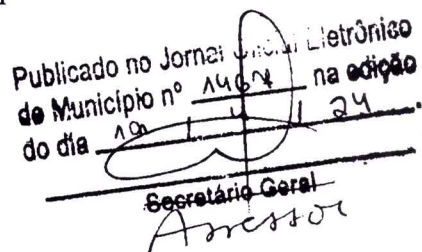 Publicado no Jornal Oficial Eletrônico
de Município nº 146 na edição
do dia 24.
Secretário Geral
Assessor